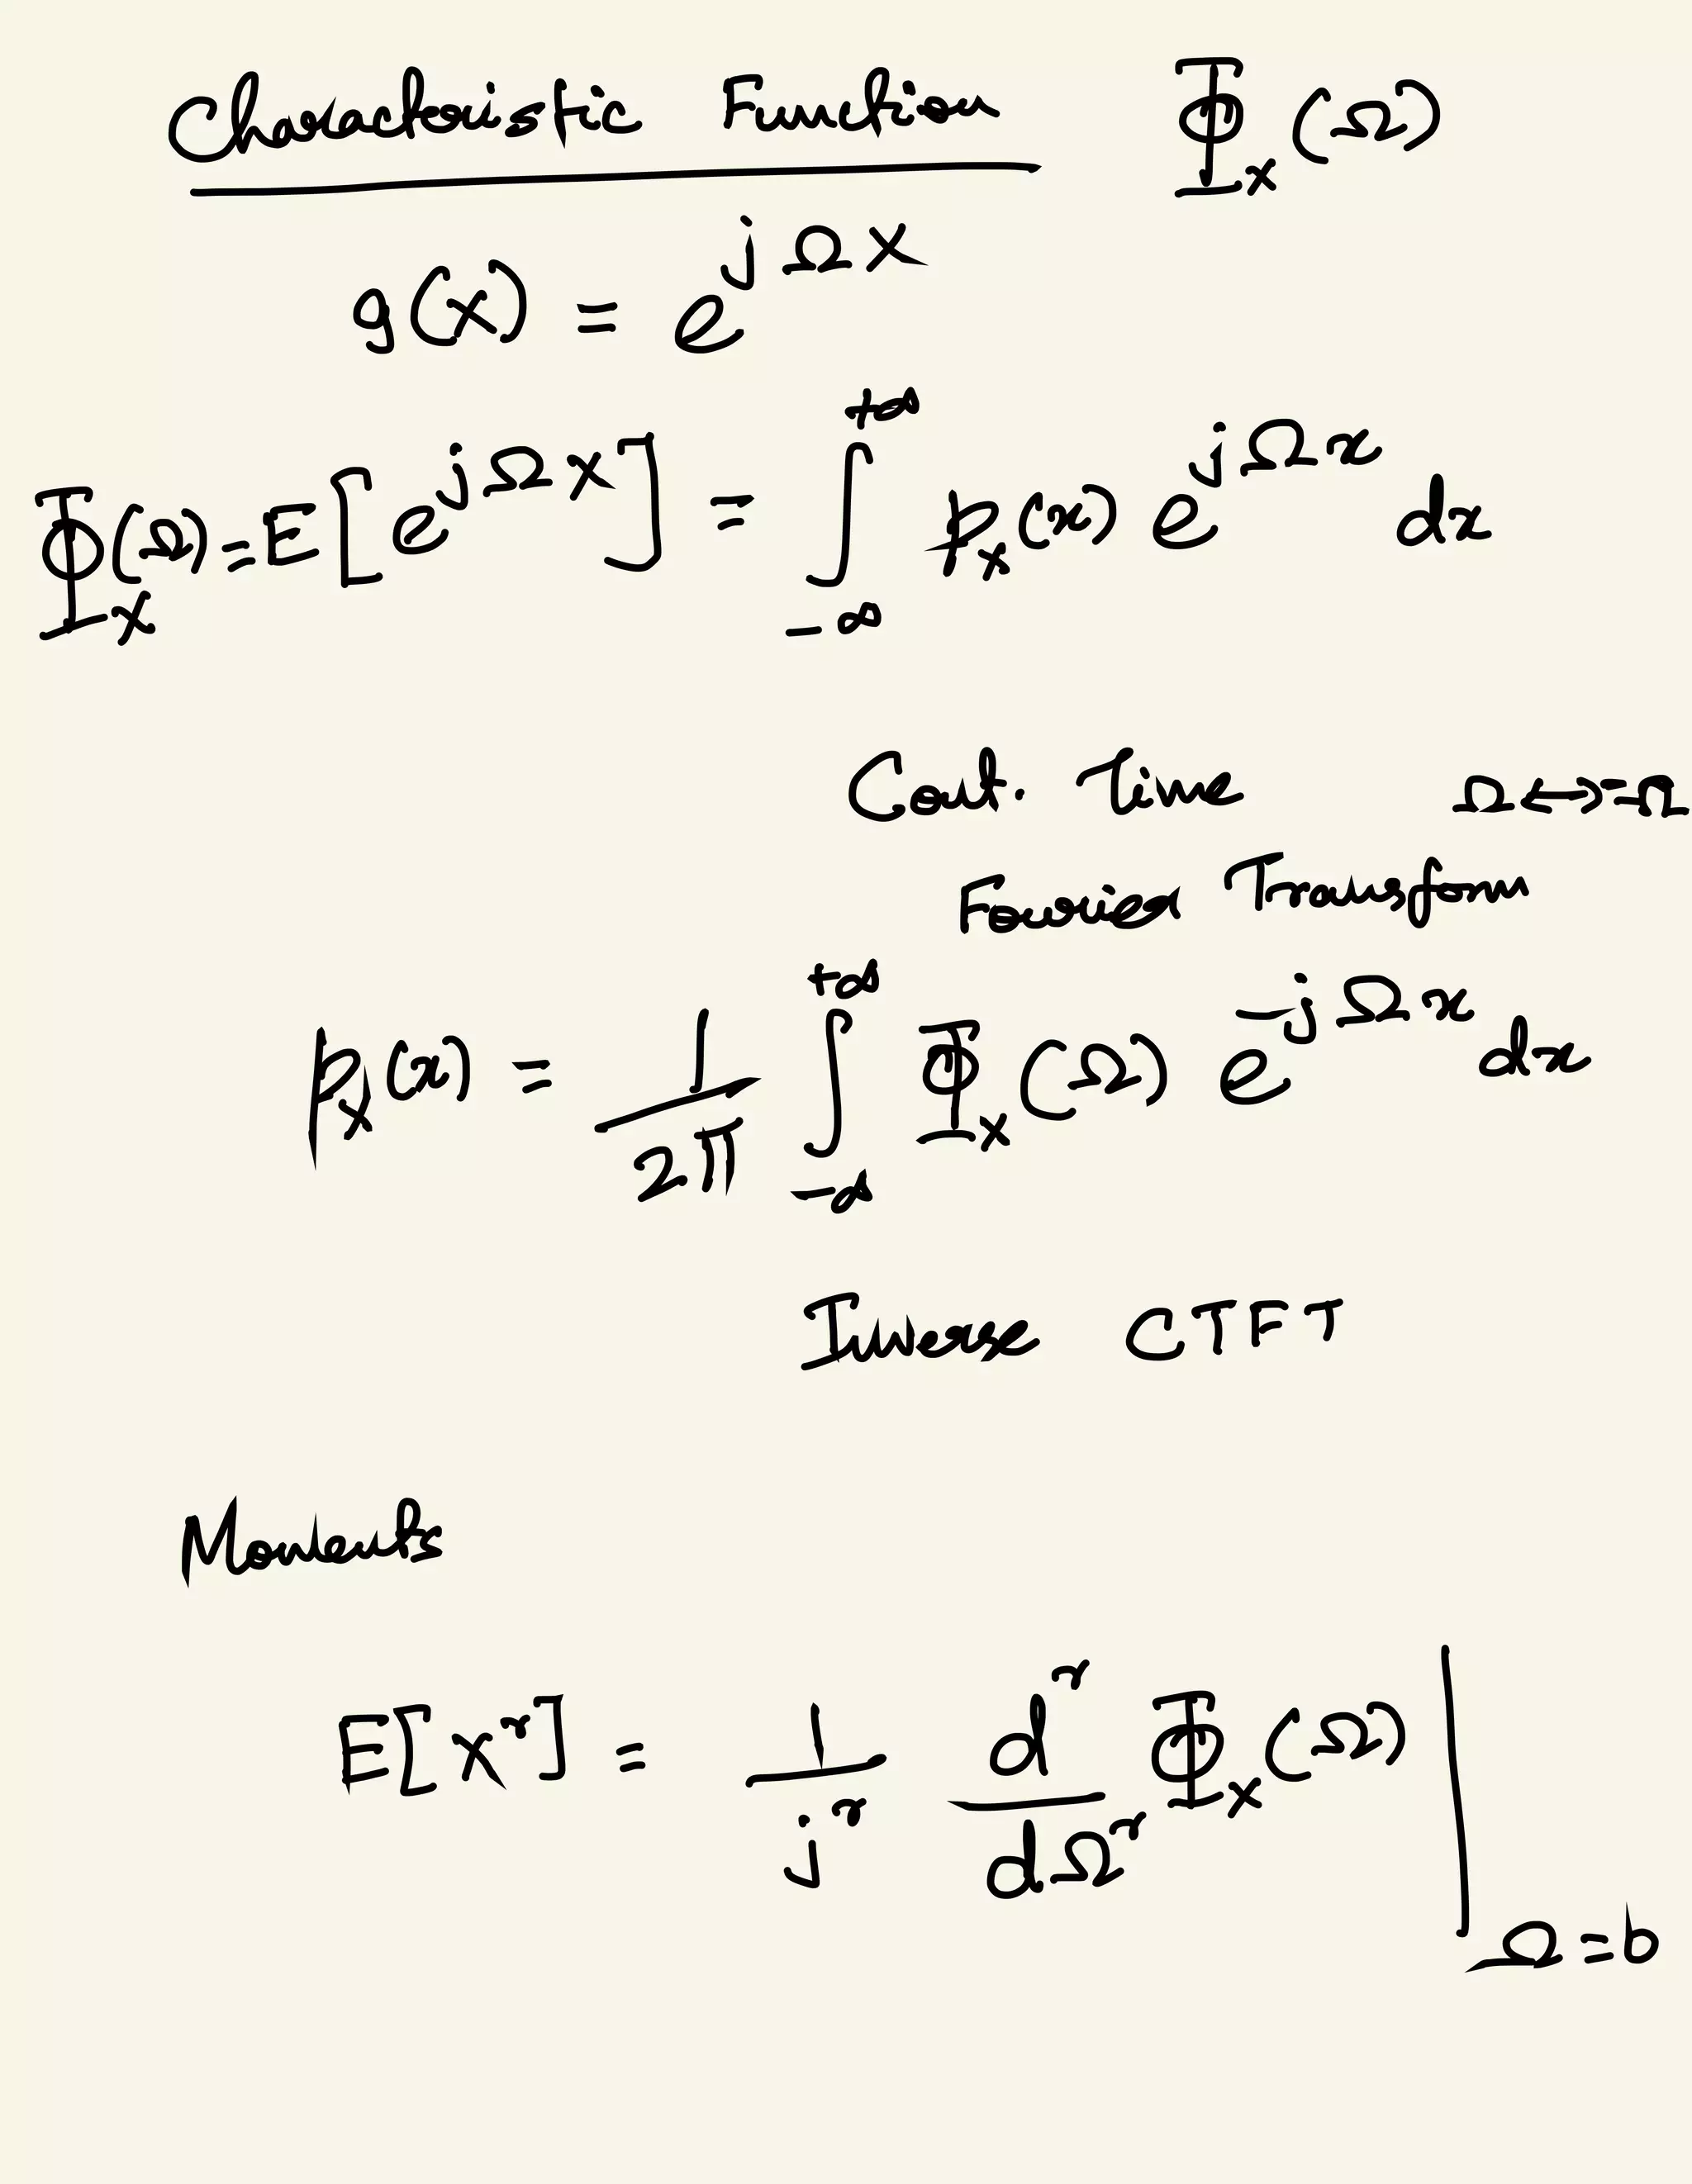 Characteristic Function Φ_X(Ω)
g(X) = e^{jΩX}
Φ_X(Ω) = E[e^{jΩX}] = ∫_{-∞}^{+∞} p_X(x) e^{jΩx} dx
Cont. Time Ω ↔ -Ω
Fourier Transform
p_X(x) = \frac{1}{2π} ∫_{-∞}^{+∞} Φ_X(Ω) e^{-jΩx} dx
Inverse CTFT
Moments
E[X^r] = \frac{1}{j^r} \frac{d^r}{dΩ^r} Φ_X(Ω) |_{Ω=b}